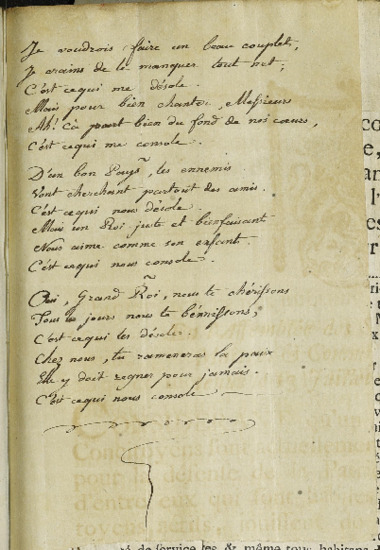 Je voudrois faire un beau couplet,
Je crains de le manquer tout net;
C'est cequi me désole.
Mais pour bien chanter, Messieurs
Ah! Cà part bien du fond de nos cœurs,
C'est cequi me console.
D'un bon Pays, les ennemis
Vont cherchant partout des amis.
C'est cequi nous désole.
Mais un Roi juste et bienfaisant
Nous aime comme son enfant.
C'est cequi nous console.
Oui, Grand Roi, nous te chérissons
Tous les jours nous te bénissons,
C'est cequi les désole.
Chez nous, tu rameneras la paix
Elle y doit regner pour jamais.
C'est cequi nous console
Concitoyens sont actuellement
pour la défense de la
d'entre eux qui ont
toyens actifs,
de service les & même tous